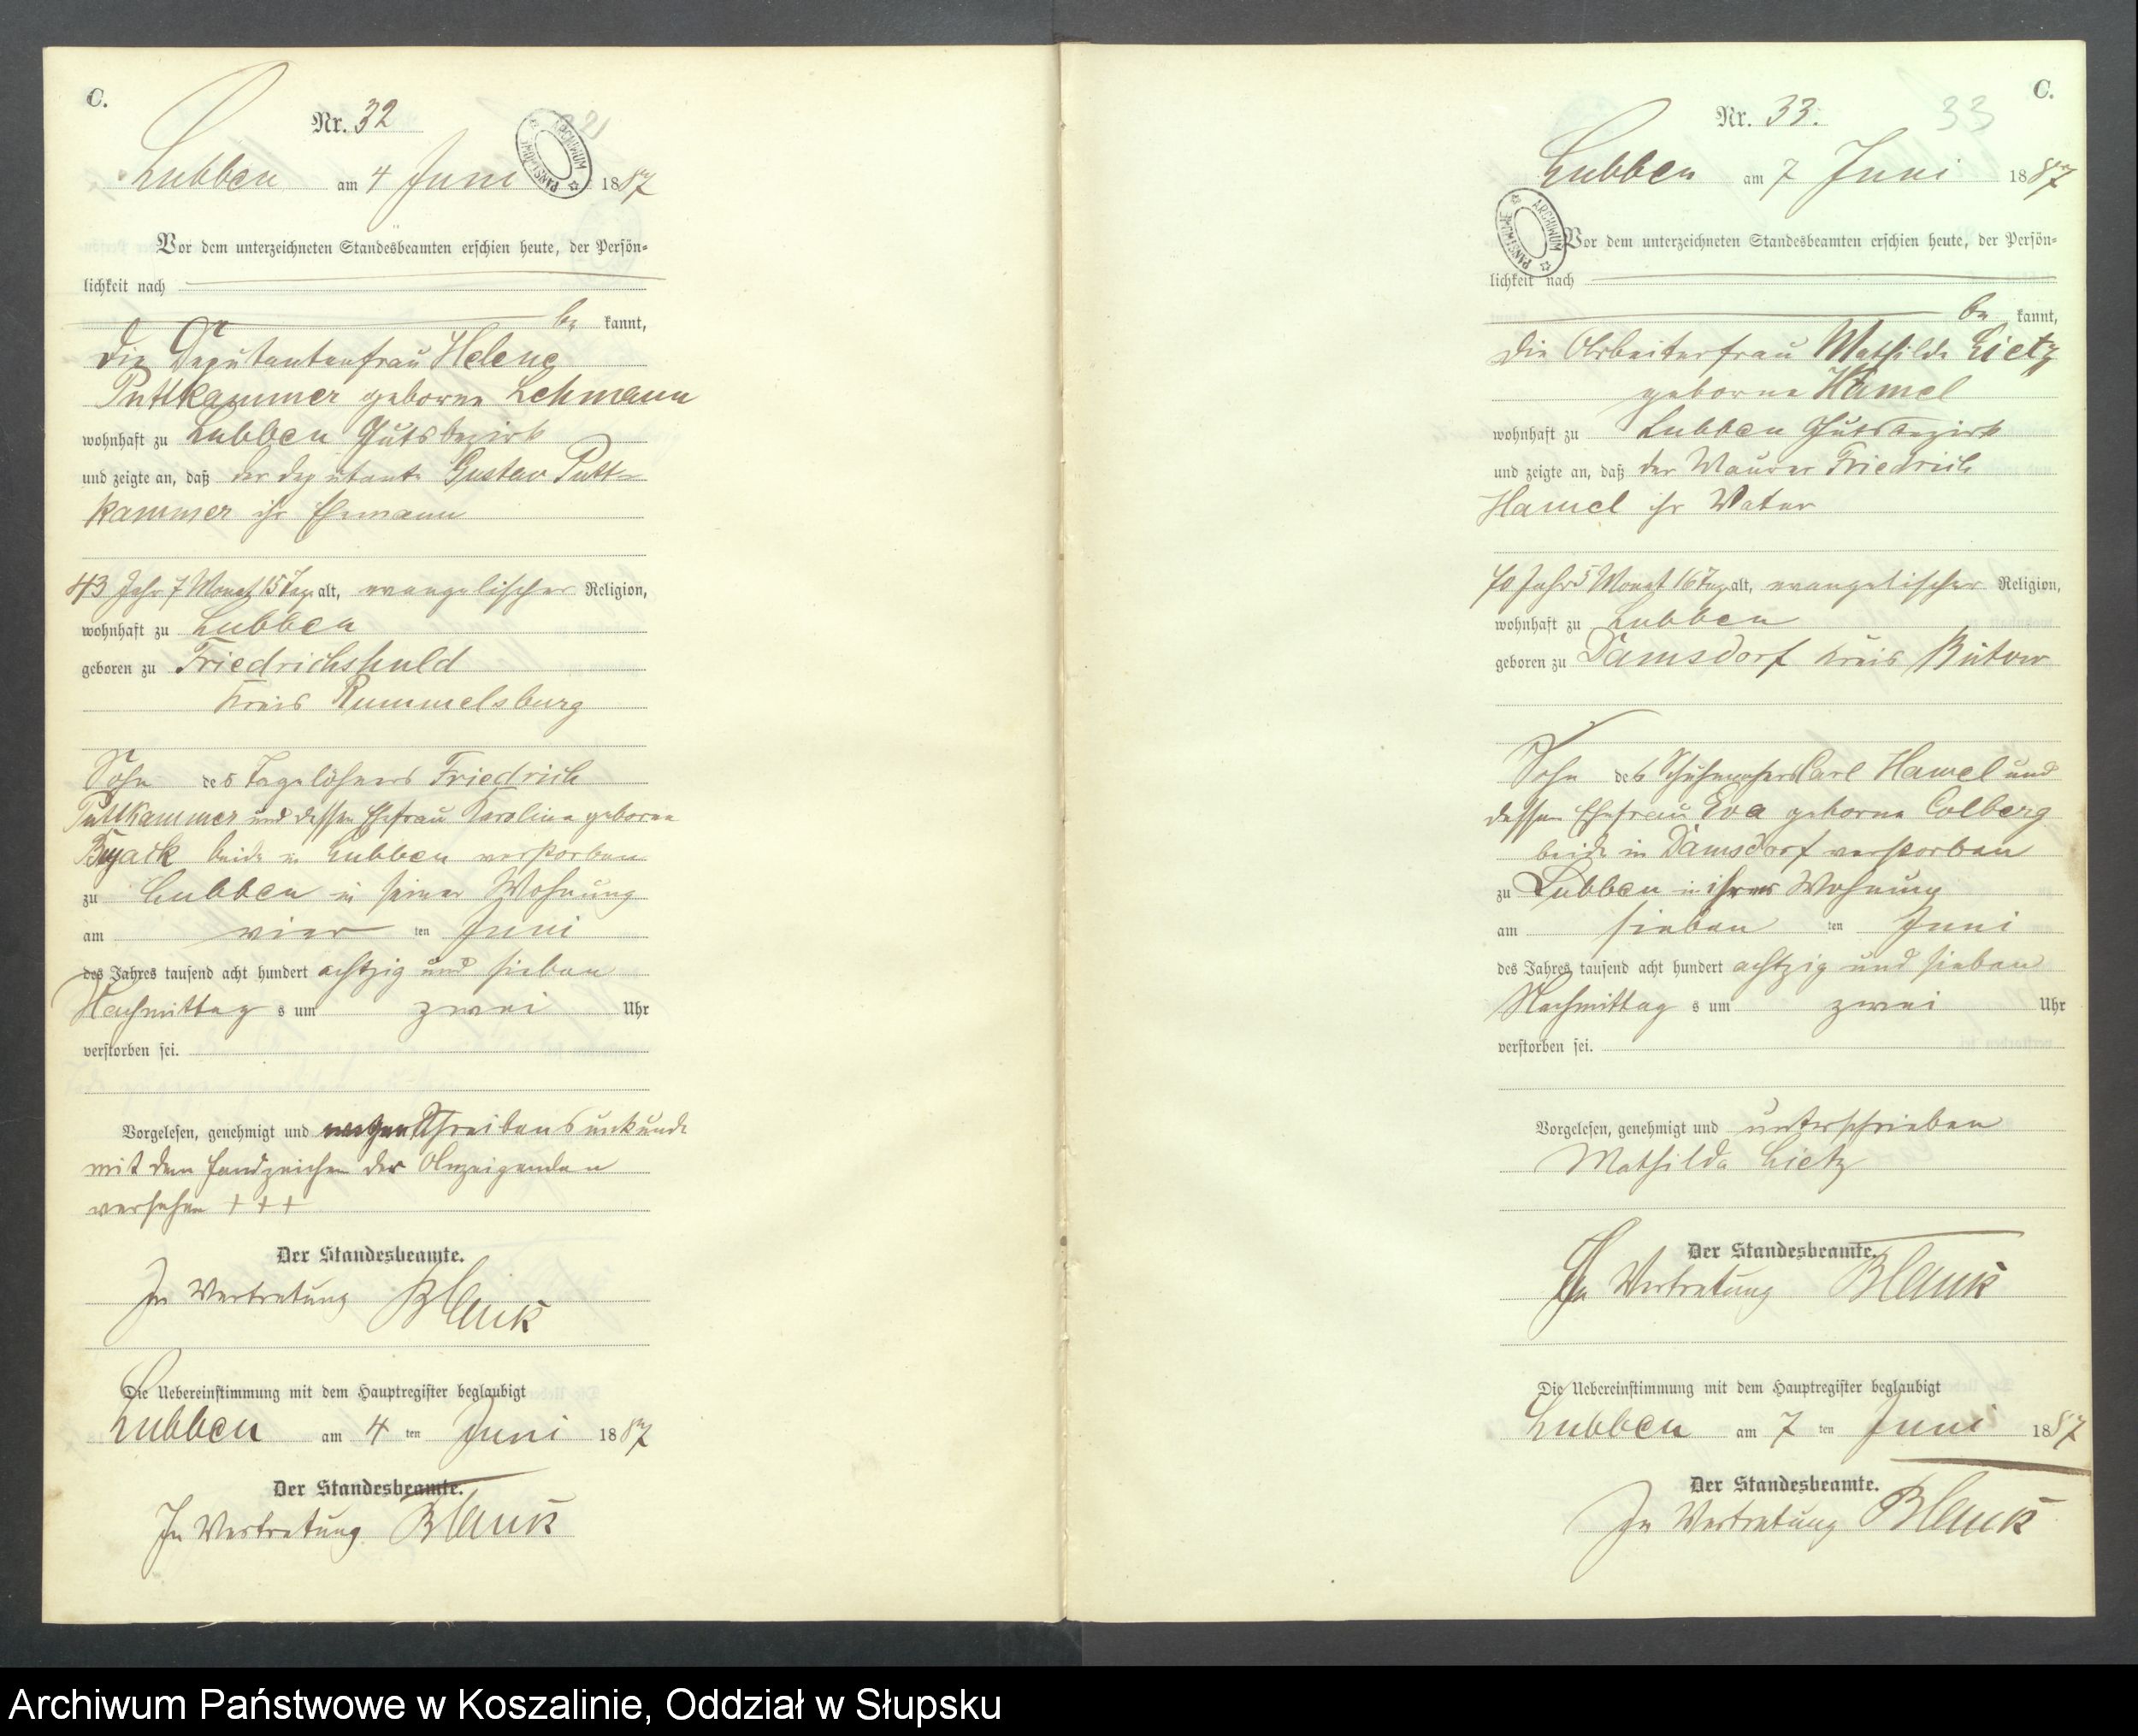 C.
Nr. 32
ARCHIWUM PAŃSTWOWE
Lubben am 4 Juni 1887
Vor dem unterzeichneten Standesbeamten erschien heute, der Persön-
lichkeit nach
be kannt,
die Deputantenfrau Helene
Puttkammer geborne Lehmann
wohnhaft zu Lubben Gutsbezirk
und zeigte an, daß der Deputant Gustav Putt-
kammer ihr Ehemann
43 Jahr 7 Monat 15 Tage alt, evangelischer Religion,
wohnhaft zu Lubben
geboren zu Friedrichshuld
Kreis Rummelsburg
Sohn des Tagelöhners Friedrich
Puttkammer und dessen Ehefrau Karoline geborne
beide in Lubben verstorben
zu Lubben in seiner Wohnung
am vier ten Juni
des Jahres tausend acht hundert achtzig und sieben
Nachmittag s um zwei Uhr
verstorben sei.
Vorgelesen, genehmigt und wegen Schreibensunkunde
mit dem Handzeichen der Anzeigenden
versehen + + +
Der Standesbeamte.
In Vertretung Blank
Die Uebereinstimmung mit dem Hauptregister beglaubigt
Lubben am 4 ten Juni 1887
Der Standesbeamte.
In Vertretung Blank
C.
Nr. 33. 33
Lubben am 7 Juni 1887
ARCHIWUM PAŃSTWOWE
Vor dem unterzeichneten Standesbeamten erschien heute, der Persön-
lichkeit nach
be kannt,
die Arbeiterfrau Mathilde Lietz
geborne Hamel
wohnhaft zu Lubben Gutsbezirk
und zeigte an, daß der Maurer Friedrich
Hamel ihr Vater
70 Jahr 5 Monat 16 Tage alt, evangelischer Religion,
wohnhaft zu Lubben
geboren zu Damsdorf Kreis Bütow
Sohn des Schuhmachers Carl Hamel und
dessen Ehefrau Eva geborne Colberg
beide in Damsdorf verstorben
zu Lubben in ihrer Wohnung
am sieben ten Juni
des Jahres tausend acht hundert achtzig und sieben
Nachmittag s um zwei Uhr
verstorben sei.
Vorgelesen, genehmigt und unterschrieben
Mathilde Lietz
Der Standesbeamte.
In Vertretung Blank
Die Uebereinstimmung mit dem Hauptregister beglaubigt
Lubben am 7 ten Juni 1887
Der Standesbeamte.
In Vertretung Blank
Archiwum Państwowe w Koszalinie, Oddział w Słupsku